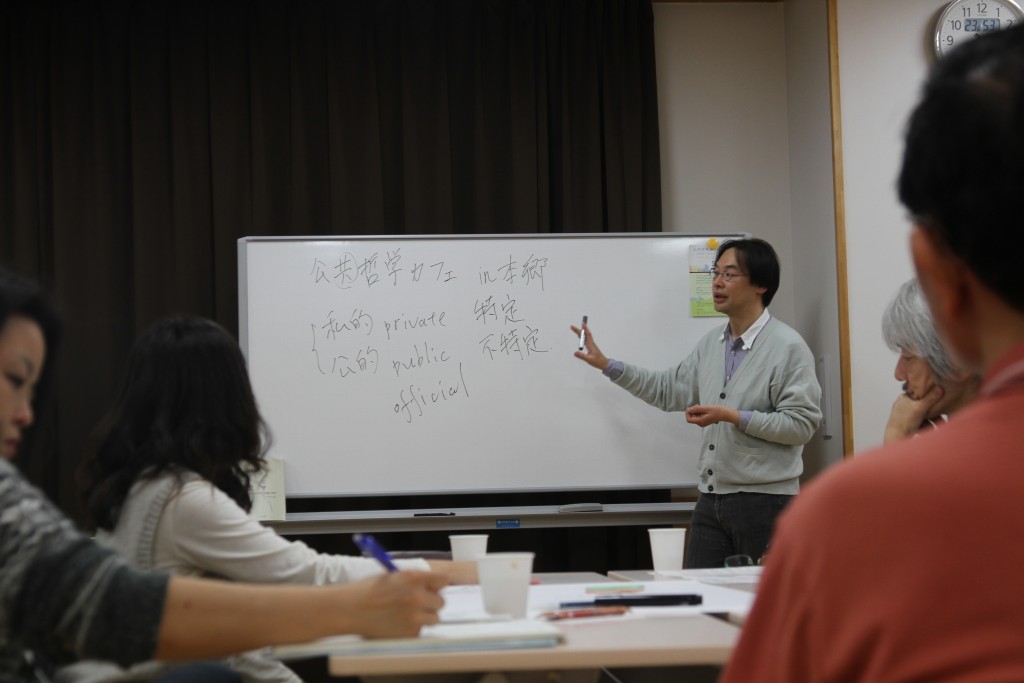 公共哲学カフェ in 本郷
私的 private 特定
公的 public 不特定
official
11 12 1
10
9